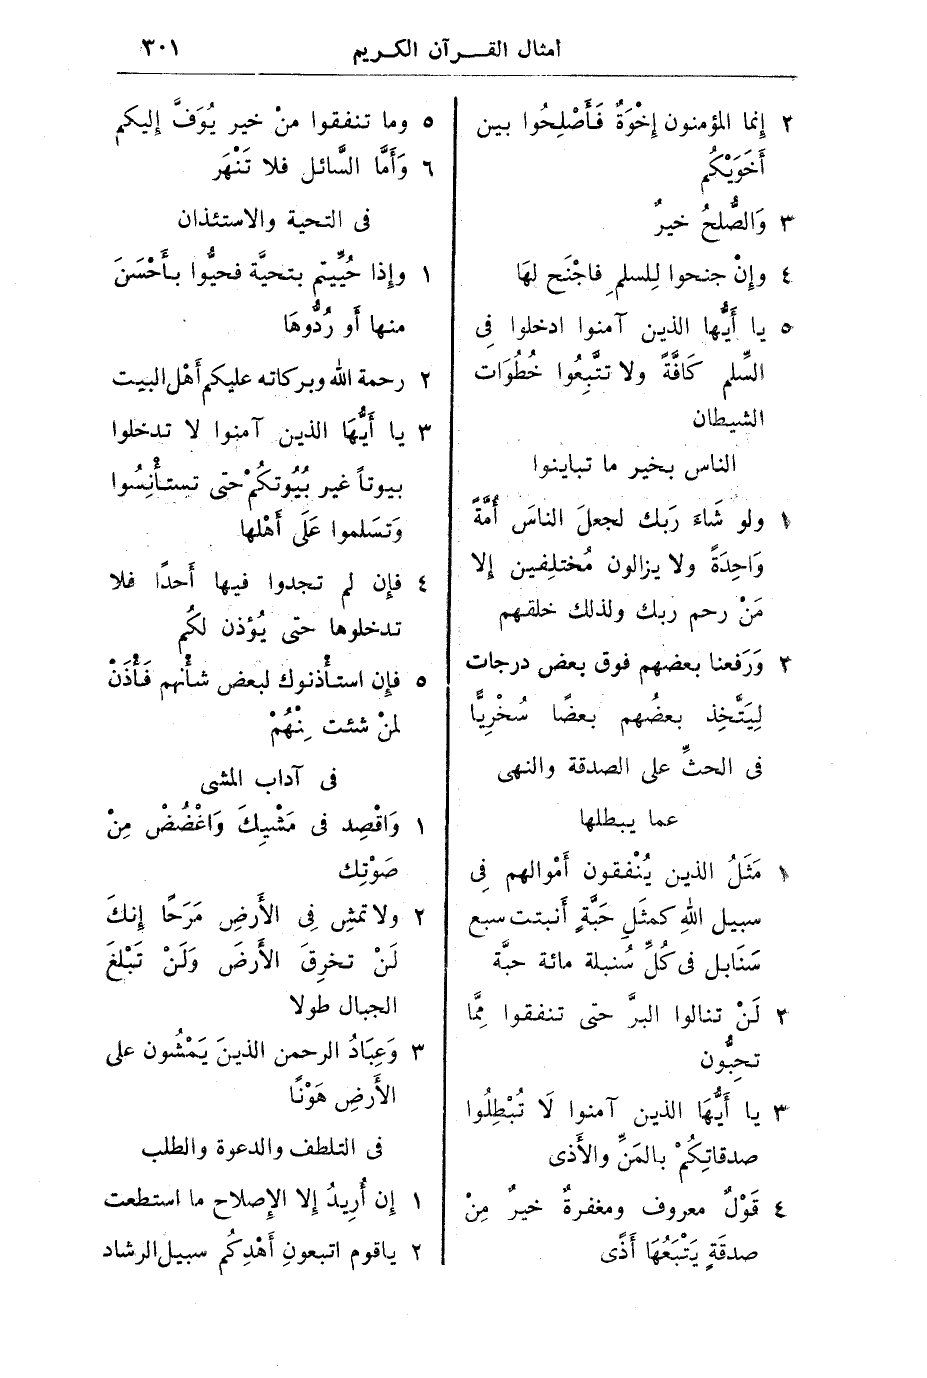 أمثال القرآن الكريم
٣٠١
٢ إنما المؤمنون إخْوَةٌ فَأَصْلِحُوا بين
أَخَوَيْكُم
٣ وَالصُّلحُ خيرٌ
٤ وإنْ جنحوا لِلسلمِ فاجْنَح لهَا
٥ يا أَيُّها الذين آمنوا ادخلوا فى
السِّلم كَافَّةً ولا تتَّبِعُوا خُطُوَات
الشيطان
الناس بخير ما تباينوا
١ ولو شَاءَ رَبك لجعلَ الناسَ أُمَّةً
وَاحِدَةً ولا يزالون مُختلِفين إلا
مَنْ رحم ربك ولذلك خلقهم
٢ وَرَفعنا بعضهم فوق بعض درجات
لِيَتَّخِذ بعضُهم بعضًا سُخْرِيًّا
فى الحثِّ على الصدقة والنهى
عما يبطلها
١ مَثَلُ الذين يُنْفقون أَمْوالهم فى
سبيل اللهِ كمثَلِ حَبَّةٍ أَنبتت سبع
سَنَابل فى كُلِّ سُنبلة مائة حبَّة
٢ لَنْ تنالوا البرَّ حتى تنفقوا مِمَّا
تحِبُّون
٣ يا أَيُّهَا الذين آمنوا لَا تُبْطِلُوا
صدقاتِكُمْ بالمَنِّ والأَذى
٤ قَوْلٌ معروف ومغفرةٌ خيرٌ مِنْ
صدقَةٍ يَتْبَعُهَا أَذًى
٥ وما تنفقوا منْ خير يُوَفَّ إليكم
٦ وَأَمَّا السَّائل فلا تَنْهَر
فى التحية والاستئذان
١ وإذا حُيِّيتم بتحيَّة فحيُّوا بأَحْسَنَ
منها أَو رُدُّوهَا
٢ رحمة الله وبركاته عليكم أَهْل البيت
٣ يا أَيُّهَا الذين آمنوا لا تدخلوا
بيوتاً غير بُيُوتكُمْ حتى تستأْنِسُوا
وَتسَلموا عَلَى أَهْلها
٤ فإن لم تجدوا فيها أَحدًا فلا
تدخلوها حتى يُؤذن لكُم
٥ فإن استأْذنوك لبعض شأْنهم فَأْذَنْ
لمنْ شئت مِنْهُمْ
فى آداب المشى
١ وَاقْصِد فى مَشْيِكَ وَاغْضُضْ مِنْ
صَوْتِك
٢ ولا تمشِ فى الأَرضِ مَرَحًا إنكَ
لَنْ تخرِقَ الأَرضَ وَلَنْ تَبْلغَ
الجبال طولا
٣ وَعِبَادُ الرحمن الذينَ يَمْشُون على
الأَرضِ هَوْنًا
فى التلطف والدعوة والطلب
١ إن أُرِيدُ إلا الإصلاح ما استطعت
٢ ياقوم اتبعونِ أَهْدِكُم سبيل الرشاد